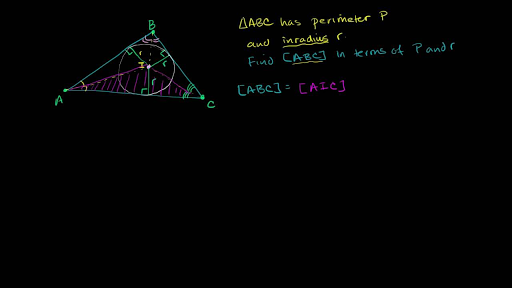 △ABC has perimeter P
and inradius r
Find [ABC] in terms of P and r
[ABC] = [AIC]
B
r
I
r
r
A
C